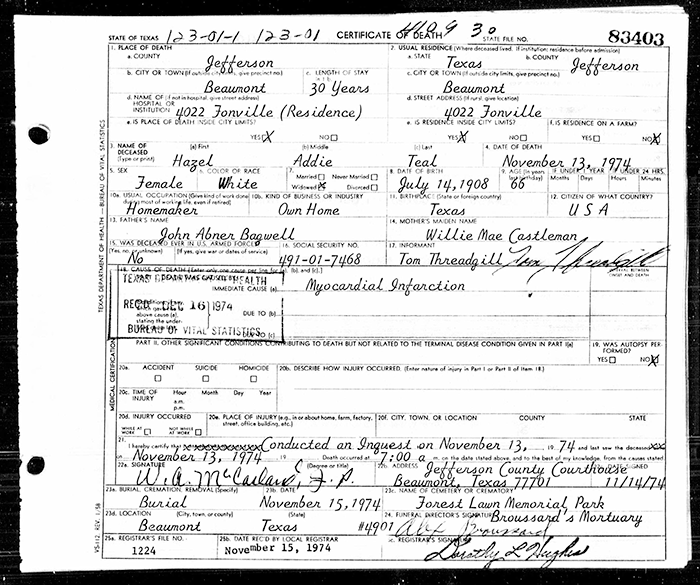 STATE OF TEXAS 123-01-1 123-01 CERTIFICATE OF DEATH 30 STATE FILE NO. 83403
TEXAS DEPARTMENT OF HEALTH — BUREAU OF VITAL STATISTICS
1. PLACE OF DEATH 2. USUAL RESIDENCE (Where deceased lived. If institution: residence before admission)
a. COUNTY Jefferson a. STATE Texas b. COUNTY Jefferson
b. CITY OR TOWN (If outside city limits, give precinct no.) Beaumont c. LENGTH OF STAY 30 Years c. CITY OR TOWN (If outside city limits, give precinct no.) Beaumont
d. NAME OF (If not in hospital, give street address) HOSPITAL OR INSTITUTION 4022 Fonville (Residence) d. STREET ADDRESS (If rural, give location) 4022 Fonville
e. IS PLACE OF DEATH INSIDE CITY LIMITS? YES X NO e. IS RESIDENCE INSIDE CITY LIMITS? YES X NO f. IS RESIDENCE ON A FARM? YES NO X
3. NAME OF DECEASED (Type or print) (a) First Hazel (b) Middle Addie (c) Last Teal 4. DATE OF DEATH November 13, 1974
5. SEX Female 6. COLOR OR RACE White 7. Married Never Married Widowed X Divorced 8. DATE OF BIRTH July 14, 1908 9. AGE (In years last birthday) 66 IF UNDER 1 YEAR Months Days IF UNDER 24 HRS. Hours Minutes
10a. USUAL OCCUPATION (Give kind of work done during most of working life, even if retired) Homemaker 10b. KIND OF BUSINESS OR INDUSTRY Own Home 11. BIRTHPLACE (State or foreign country) Texas 12. CITIZEN OF WHAT COUNTRY? USA
13. FATHER'S NAME John Abner Bagwell 14. MOTHER'S MAIDEN NAME Willie Mae Castleman
15. WAS DECEASED EVER IN U.S. ARMED FORCES? (Yes, no, or unknown) (If yes, give war or dates of service) No 16. SOCIAL SECURITY NO. 491-01-7468 17. INFORMANT Tom Threadgill Tom Threadgill
18. CAUSE OF DEATH [Enter only one cause per line for (a), (b), and (c).] INTERVAL BETWEEN ONSET AND DEATH
PART I. DEATH WAS CAUSED BY: IMMEDIATE CAUSE (a) Myocardial Infarction
REC'D DEC 16 1974
DUE TO (b)
BUREAU OF VITAL STATISTICS
DUE TO (c)
MEDICAL CERTIFICATION
PART II. OTHER SIGNIFICANT CONDITIONS CONTRIBUTING TO DEATH BUT NOT RELATED TO THE TERMINAL DISEASE CONDITION GIVEN IN PART I(a) 19. WAS AUTOPSY PERFORMED? YES NO X
20a. ACCIDENT SUICIDE HOMICIDE 20b. DESCRIBE HOW INJURY OCCURRED. (Enter nature of injury in Part I or Part II of Item 18.)
20c. TIME OF INJURY Hour a.m. p.m. Month Day Year
20d. INJURY OCCURRED WHILE AT WORK NOT WHILE AT WORK 20e. PLACE OF INJURY (e.g., in or about home, farm, factory, street, office building, etc.) 20f. CITY, TOWN, OR LOCATION COUNTY STATE
21. I hereby certify that xxxxxxxxxxxx Conducted an Inquest on November 13, 1974 and last saw the deceased xx
November 13, 1974 Death occurred at 7:00 a. m. on the date stated above; and to the best of my knowledge, from the causes stated
22a. SIGNATURE (Degree or title) W. A. McCarland, J.P. 22b. ADDRESS Jefferson County Courthouse Beaumont, Texas 77701 DATE SIGNED 11/14/74
23a. BURIAL, CREMATION, REMOVAL (Specify) Burial 23b. DATE November 15, 1974 23c. NAME OF CEMETERY OR CREMATORY Forest Lawn Memorial Park
23d. LOCATION (City, town, or county) (State) Beaumont Texas #4901 24. FUNERAL DIRECTOR'S SIGNATURE Broussard's Mortuary Broussard
25a. REGISTRAR'S FILE NO. 1224 25b. DATE REC'D BY LOCAL REGISTRAR November 15, 1974 25c. REGISTRAR'S SIGNATURE Dorothy L Hughes
VS-112 REV. 1-58